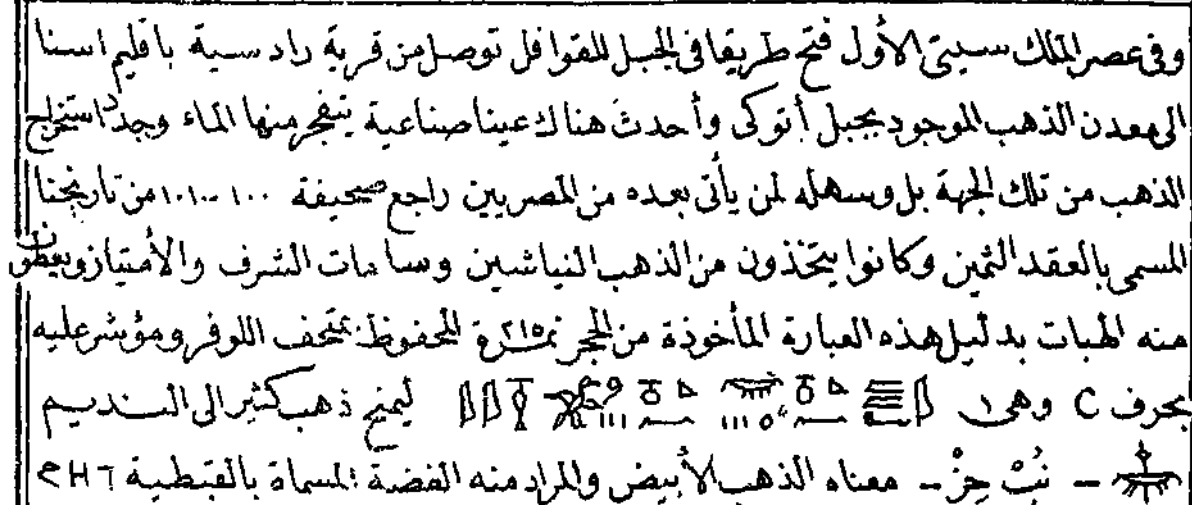 وفى عصر الملك سيتى الأول فتح طريقا فى الجبل للقوافل توصل من قرية رادسية باقليم اسنا
الى معدن الذهب الموجود بجبل أتوكى وأحدث هناك عينا صناعية يتفجر منها الماء وجدد استخراج
الذهب من تلك الجهة بل وسهله لمن يأتى بعده من المصريين راجع صحيفة ١٠٠-١٠١ من تاريخنا
المسمى بالعقد الثمين وكانوا يتخذون من الذهب النياشين وسامات الشرف والأمتياز ويعطون
منه الهبات بدليل هذه العبارة المأخوذة من الحجر نمرة ٢١٥ المحفوظ بمتحف اللوفر ومؤشر عليه
بحرف C وهى ليمنح ذهب كثير الى النديم
– نُبْ حِزْ – معناه الذهب الأبيض والمراد منه الفضة المسماة بالقبطية